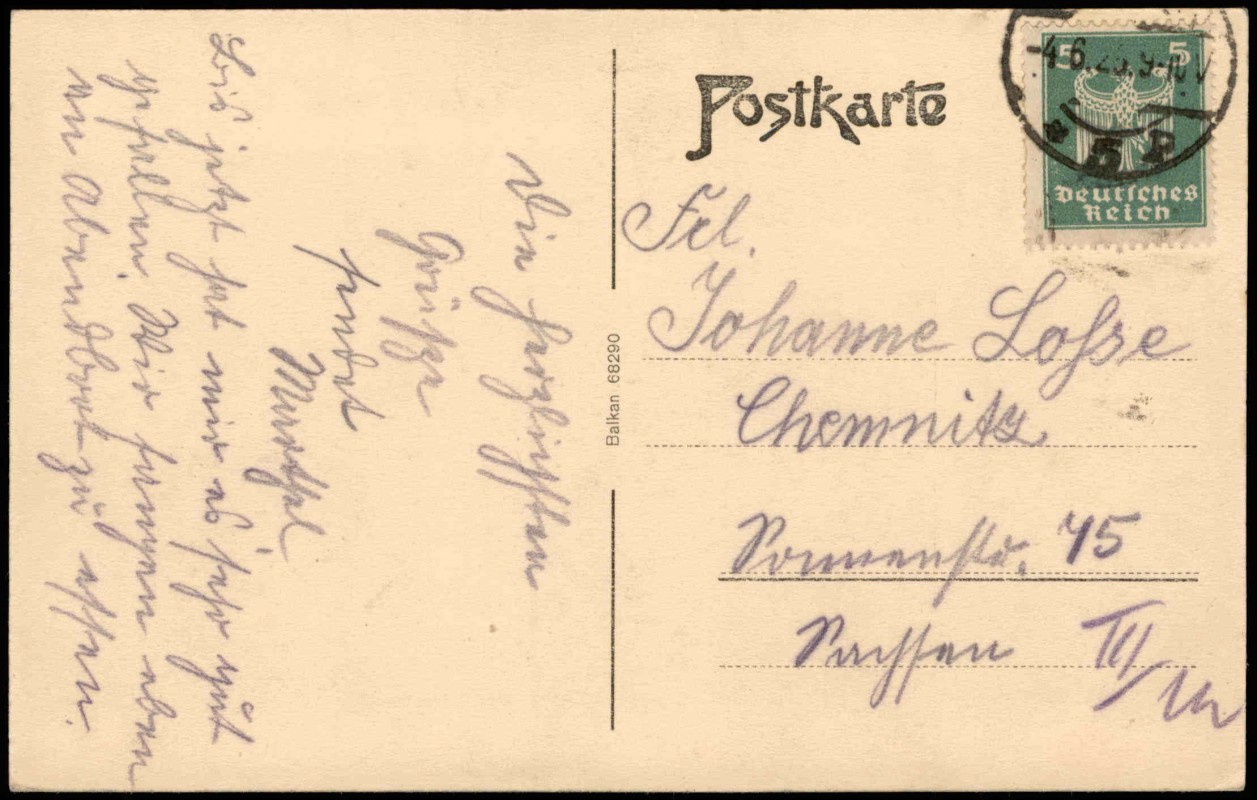 Postkarte
5 5
Deutsches
Reich
-4.6.25. 9-10 V
Balkan 68290
Frl.
Johanne Losse
Chemnitz
Sonnenstr. 75
Sachsen III/
Die herzlichsten
Grüße
sendet
Bis jetzt hat mir es sehr gut
gefallen. Wir fangen eben
an Abendbrot zu essen.